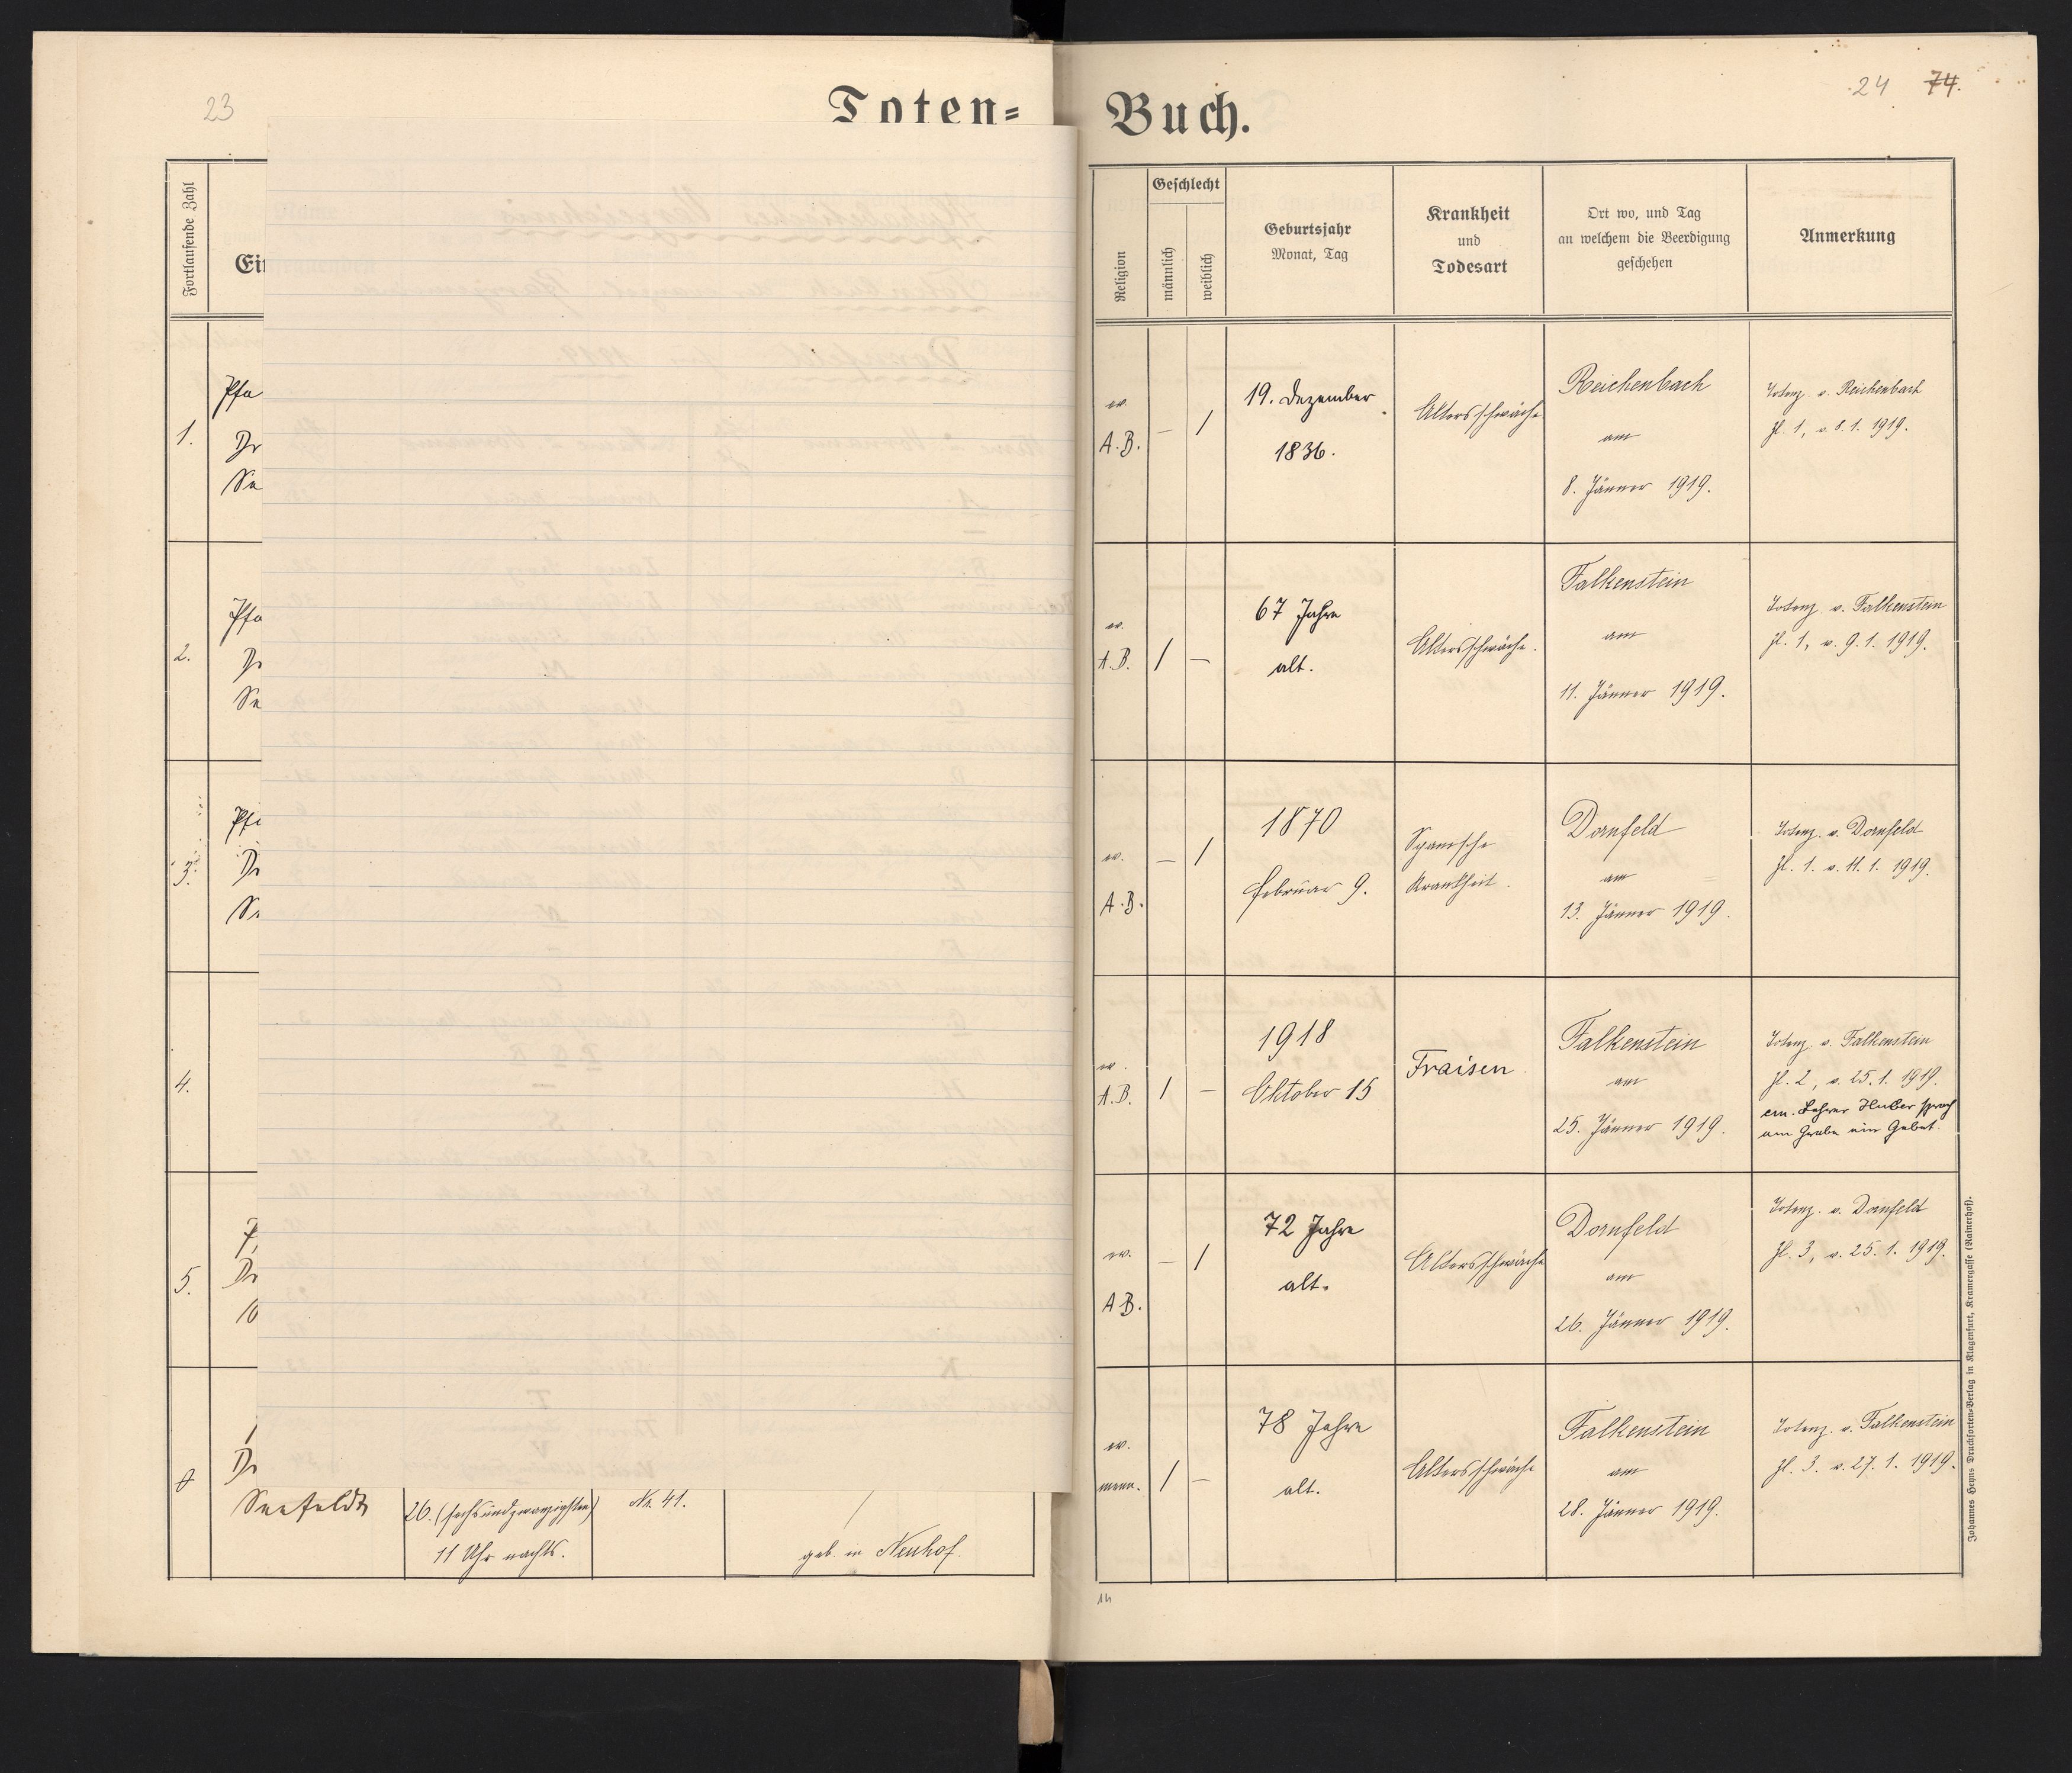 23
Toten=
Fortlaufende Zahl
Ei
1.
Pfa
Dr
Se
2.
Pfa
Se
3.
4.
5.
Dr
10
Dr
Seefeldt
26. (sechsundzwanzigsten)
11 Uhr nachts.
Nr. 41.
geb. in Neuhof.
24 74.
Buch.
Religion
Geschlecht
männlich
weiblich
Geburtsjahr
Monat, Tag
Krankheit
und
Todesart
Ort wo, und Tag
an welchem die Beerdigung
geschehen
Anmerkung
ev.
A.B.
–
/
19. Dezember
1836.
Altersschwäche
Reichenbach
am
8. Jänner 1919.
Totenz. v. Reichenbach
Zl. 1, v. 8. 1. 1919.
ev.
A.B.
/
–
67 Jahre
alt.
Altersschwäche.
Falkenstein
am
11. Jänner 1919.
Totenz. v. Falkenstein
Zl. 1, v. 9. 1. 1919.
ev.
A.B.
–
/
1870
Februar 9.
Spanische
Krankheit.
Dornfeld
am
13. Jänner 1919.
Totenz. v. Dornfeld
Zl. 1. v. 11. 1. 1919.
ev.
A.B.
/
–
1918
Oktober 15
Fraisen
Falkenstein
am
25. Jänner 1919.
Totenz. v. Falkenstein
Zl. 2, v. 25. 1. 1919.
em. Lehrer Huber sprach
am Grabe ein Gebet.
ev.
A B.
–
/
72 Jahre
alt.
Altersschwäche
Dornfeld
am
26. Jänner 1919.
Totenz. v. Dornfeld
Zl. 3, v. 25. 1. 1919.
ev.
menn.
/
–
78 Jahre
alt.
Altersschwäche
Falkenstein
am
28. Jänner 1919.
Totenz. v. Falkenstein
Zl. 3. v. 27. 1. 1919.
Johannes Heyns Drucksorten-Verlag in Klagenfurt, Kramergasse (Rainerhof).